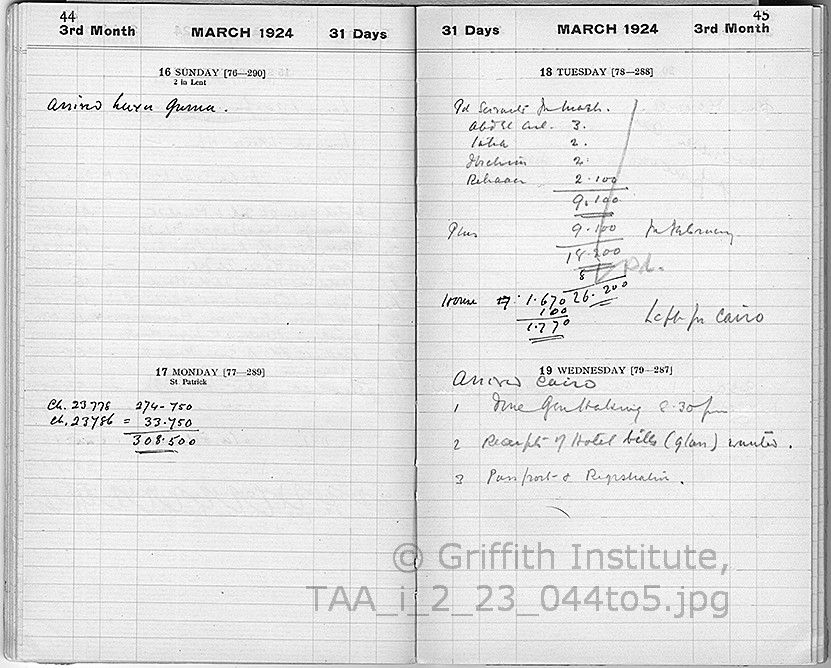 44
3rd Month MARCH 1924 31 Days
16 SUNDAY [76—290]
2 in Lent
Arrived Luxor Gurna.
17 MONDAY [77—289]
St Patrick
Ch. 23778 274-750
Ch. 23786 = 33.750
308.500
45
31 Days MARCH 1924 3rd Month
18 TUESDAY [78—288]
Pd Servants for March.
Abdel Aal. 3.
2.
Ibrahim 2.
2.100
9.100
Plus 9.100 for February
18.200
8
Pd.
26.200
House 17: 1.670
100
1.770
Left for Cairo
19 WEDNESDAY [79—287]
Arrived Cairo
1 Dine Gen Haking 8.30 pm
2 Receipts of Hotel bills (glass) wanted.
3 Passport & Registration.
© Griffith Institute,
TAA_i_2_23_044to5.jpg